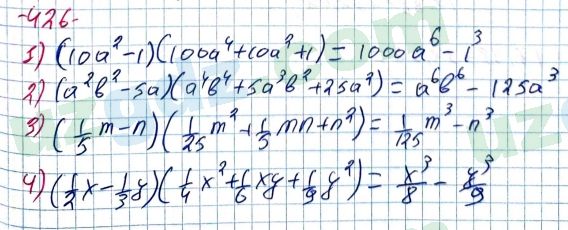 -426-
1) (10a² - 1)(100a⁴ + 10a² + 1) = 1000a⁶ - 1³
2) (a²b² - 5a)(a⁴b⁴ + 5a³b² + 25a²) = a⁶b⁶ - 125a³
3) (1/5 m - n)(1/25 m² + 1/5 mn + n²) = 1/125 m³ - n³
4) (1/2 x - 1/3 y)(1/4 x² + 1/6 xy + 1/9 y²) = x³/8 - y³/9